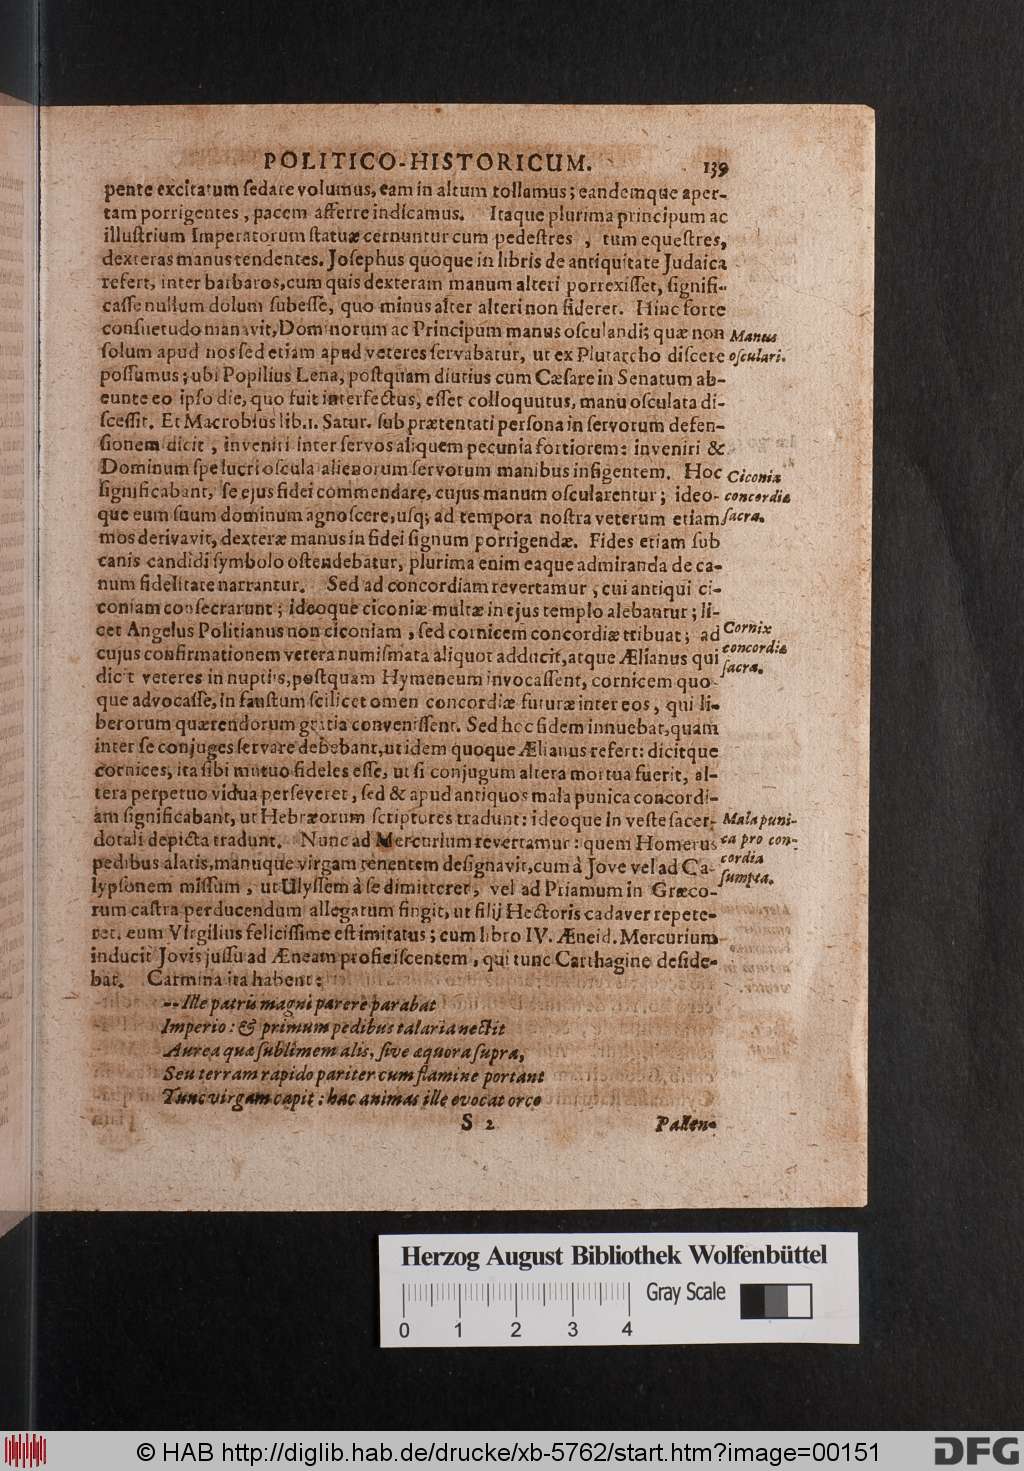 POLITICO-HISTORICUM. 139
pente excitatum sedare volumus, eam in altum tollamus; eandemque aper-
tam porrigentes, pacem afferre indicamus. Itaque plurima principum ac
illustrium Imperatorum statuæ cernuntur cum pedestres, tum equestres,
dexteras manus tendentes. Josephus quoque in libris de antiquitate Judaica
refert, inter barbaros, cum quis dexteram manum alteri porrexisset, signifi-
casse nullum dolum subesse, quo minus alter alteri non fideret. Hinc forte
consuetudo manavit, Dominorum ac Principum manus osculandi; quæ non
Manus
solum apud nos sed etiam apud veteres servabatur, ut ex Plutarcho discere
osculari.
possumus; ubi Popilius Lena, postquam diutius cum Cæsare in Senatum ab-
eunte eo ipso die, quo fuit interfectus, esset colloquutus, manu osculata di-
scessit. Et Macrobius lib. 1. Satur. sub prætentati persona in servorum defen-
sionem dicit, inveniri inter servos aliquem pecunia fortiorem: inveniri &
Dominum spe lucri oscula alienorum servorum manibus infigentem. Hoc
Ciconia
significabant, se ejus fidei commendare, cujus manum oscularentur; ideo-
concordia
que eum suum dominum agnoscere, usq; ad tempora nostra veterum etiam
sacra.
mos derivavit, dexteræ manus in fidei signum porrigendæ. Fides etiam sub
canis candidi symbolo ostendebatur, plurima enim eaque admiranda de ca-
num fidelitate narrantur. Sed ad concordiam revertamur, cui antiqui ci-
coniam consecrarunt; ideoque ciconiæ multæ in ejus templo alebantur; li-
cet Angelus Politianus non ciconiam, sed cornicem concordiæ tribuat; ad
Cornix
cujus confirmationem vetera numismata aliquot adducit, atque Ælianus qui
concordia
dicit veteres in nuptiis, postquam Hymeneum invocassent, cornicem quo-
sacra.
que advocasse, in faustum scilicet omen concordiæ futuræ inter eos, qui li-
berorum quærendorum gratia convenissent. Sed hoc fidem innuebat, quam
inter se conjuges servare debebant, ut idem quoque Ælianus refert: dicitque
cornices, ita sibi mutuo fideles esse, ut si conjugum altera mortua fuerit, al-
tera perpetuo vidua perseveret, sed & apud antiquos mala punica concordi-
am significabant, ut Hebræorum scriptores tradunt: ideoque in veste sacer-
Mala puni-
dotali depicta tradunt. Nunc ad Mercurium revertamur: quem Homerus
ca pro con-
pedibus alatis, manuque virgam tenentem designavit, cum à Jove vel ad Ca-
cordia
lypsonem missum, ut Ulyssem à se dimitteret, vel ad Priamum in Græco-
sumpta.
rum castra perducendum allegatum fingit, ut filij Hectoris cadaver repete-
ret. eum Virgilius felicissime est imitatus; cum libro IV. Æneid. Mercurium
inducit Jovis jussu ad Æneam proficiscentem, qui tunc Carthagine deside-
bat. Carmina ita habent:
-- Ille patris magni parere parabat
Imperio: & primum pedibus talaria nectit
Aurea qua sublimem alis, sive aquora supra,
Seu terram rapido pariter cum flamine portant
Tunc virgam capit: hac animas ille evocat orco
S 2 Pallen-
Herzog August Bibliothek Wolfenbüttel
Gray Scale
0 1 2 3 4
© HAB http://diglib.hab.de/drucke/xb-5762/start.htm?image=00151
DFG